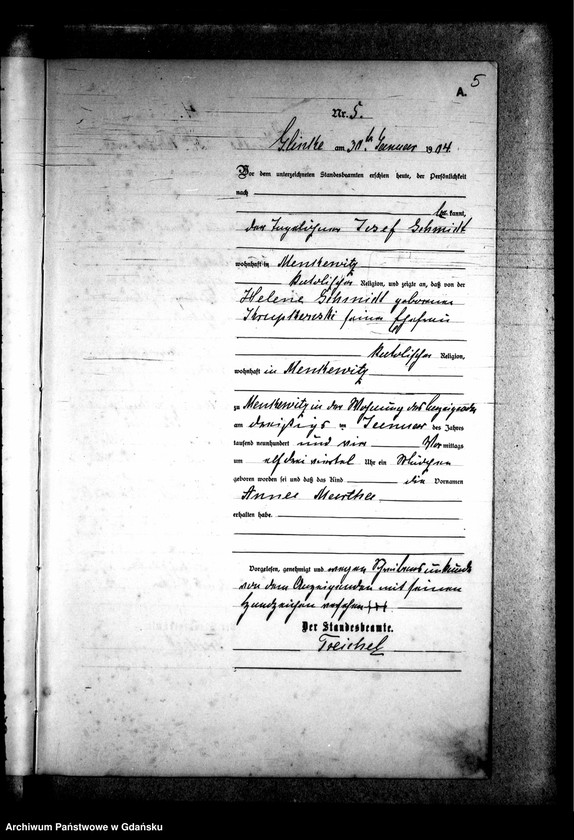 A.
5
Nr. 5.
Glinke am 30ten Januar 1904.
Vor dem unterzeichneten Standesbeamten erschien heute, der Persönlichkeit
nach
be kannt,
der Josef Schmidt
wohnhaft in
katolischer Religion, und zeigte an, daß von der
Helene Schmidt geborenen
seiner Ehefrau
katolischer Religion,
wohnhaft in
zu in der Wohnung des Anzeigenden
am dreißigs ten Januar des Jahres
tausend neunhundert und vier Vor mittags
um elf drei viertel Uhr ein Mädchen
geboren worden sei und daß das Kind die Vornamen
Anna Martha
erhalten habe.
Vorgelesen, genehmigt und wegen Schreibensunkunde
von dem Anzeigenden mit seinem
Handzeichen versehen +++
Der Standesbeamte.
Treichel
Archiwum Państwowe w Gdańsku